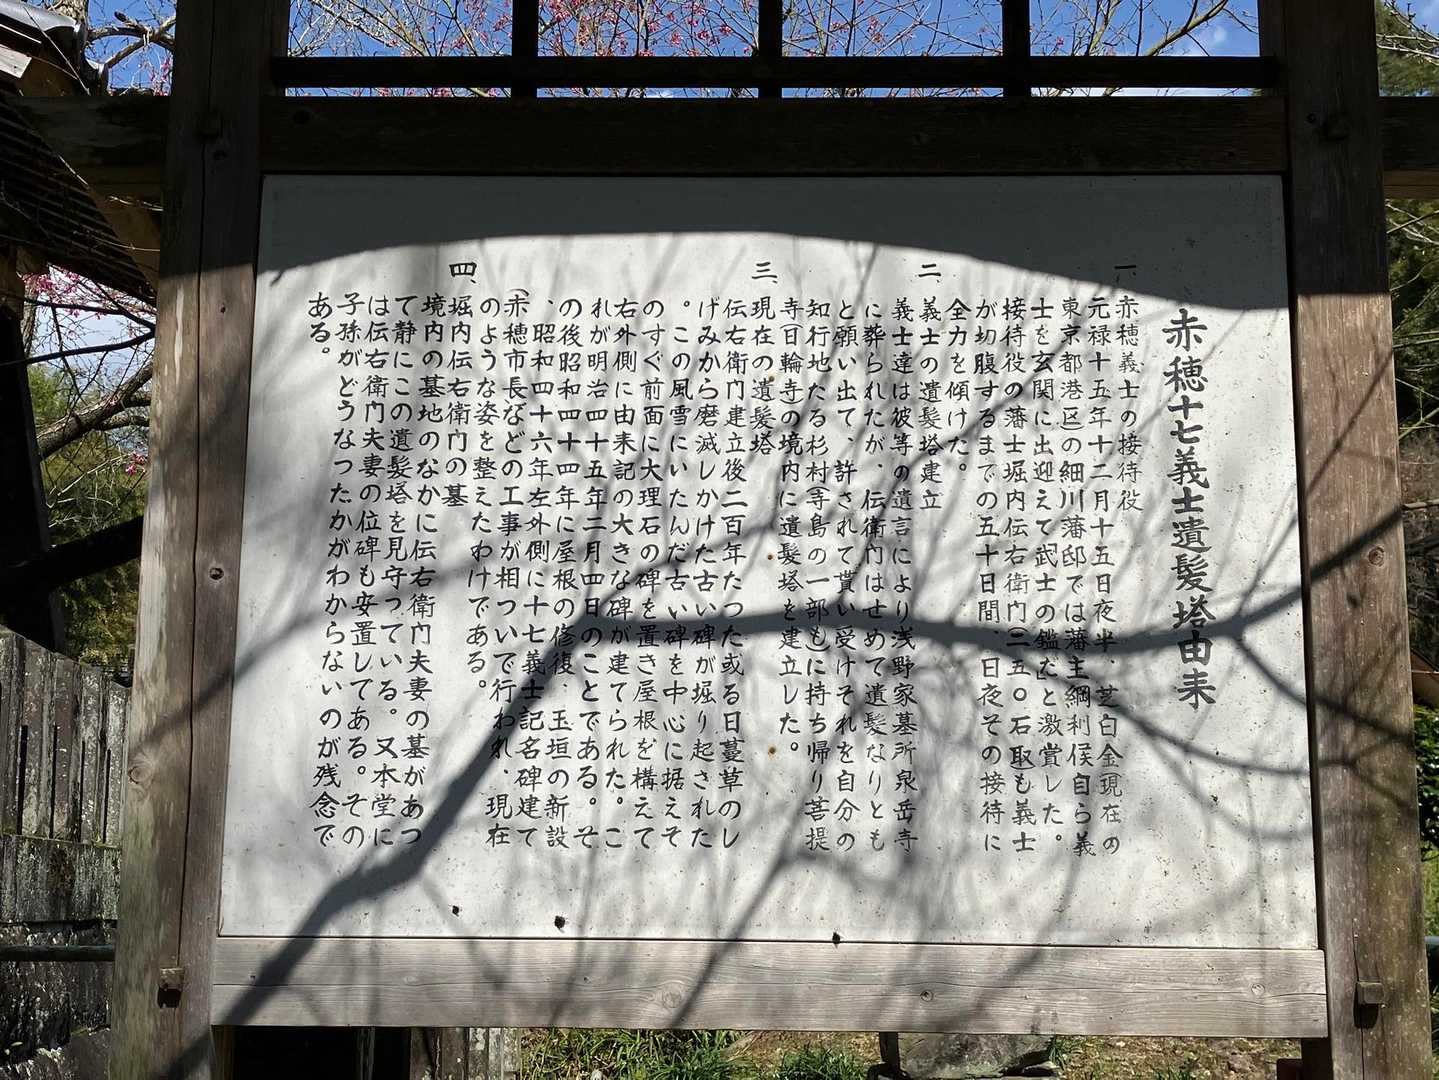 赤穂十七義士遺髪塔由来
一、赤穂義士の接待役
元禄十五年十二月十五日夜半、芝白金現在の
東京都港区の細川藩邸では藩主綱利候自ら義
士を玄関に出迎えて武士の鑑だと激賞した。
接待役の藩士堀内伝右衛門二五〇石取も義士
が切腹するまでの五十日間、日夜その接待に
全力を傾けた。
二、義士の遺髪塔建立
義士達は彼等の遺言により浅野家墓所泉岳寺
に葬られたが、伝衛門はせめて遺髪なりとも
と願い出て、許されて貰い受けそれを自分の
知行地たる杉村(寺島の一部も)に持ち帰り菩提
寺日輪寺の境内に遺髪塔を建立した。
三、現在の遺髪塔
伝右衛門建立後二百年たった或る日蔓草のし
げみから磨滅しかけた古い碑が堀り起された
。この風雪にいたんだ古い碑を中心に据えそ
のすぐ前面に大理石の碑を置き屋根を構えて
右外側に由来記の大きな碑が建てられた。こ
れが明治四十五年二月四日のことである。そ
の後昭和四十四年に屋根の修復、玉垣の新設
、昭和四十六年左外側に十七義士記名碑建て
(赤穂市長などの工事が相ついで行われ、現在
のような姿を整えたわけである。
四、堀内伝右衛門の墓
境内の墓地のなかに伝右衛門夫妻の墓があっ
て静にこの遺髪塔を見守っている。又本堂に
は伝右衛門夫妻の位碑も安置してある。その
子孫がどうなったかがわからないのが残念で
ある。